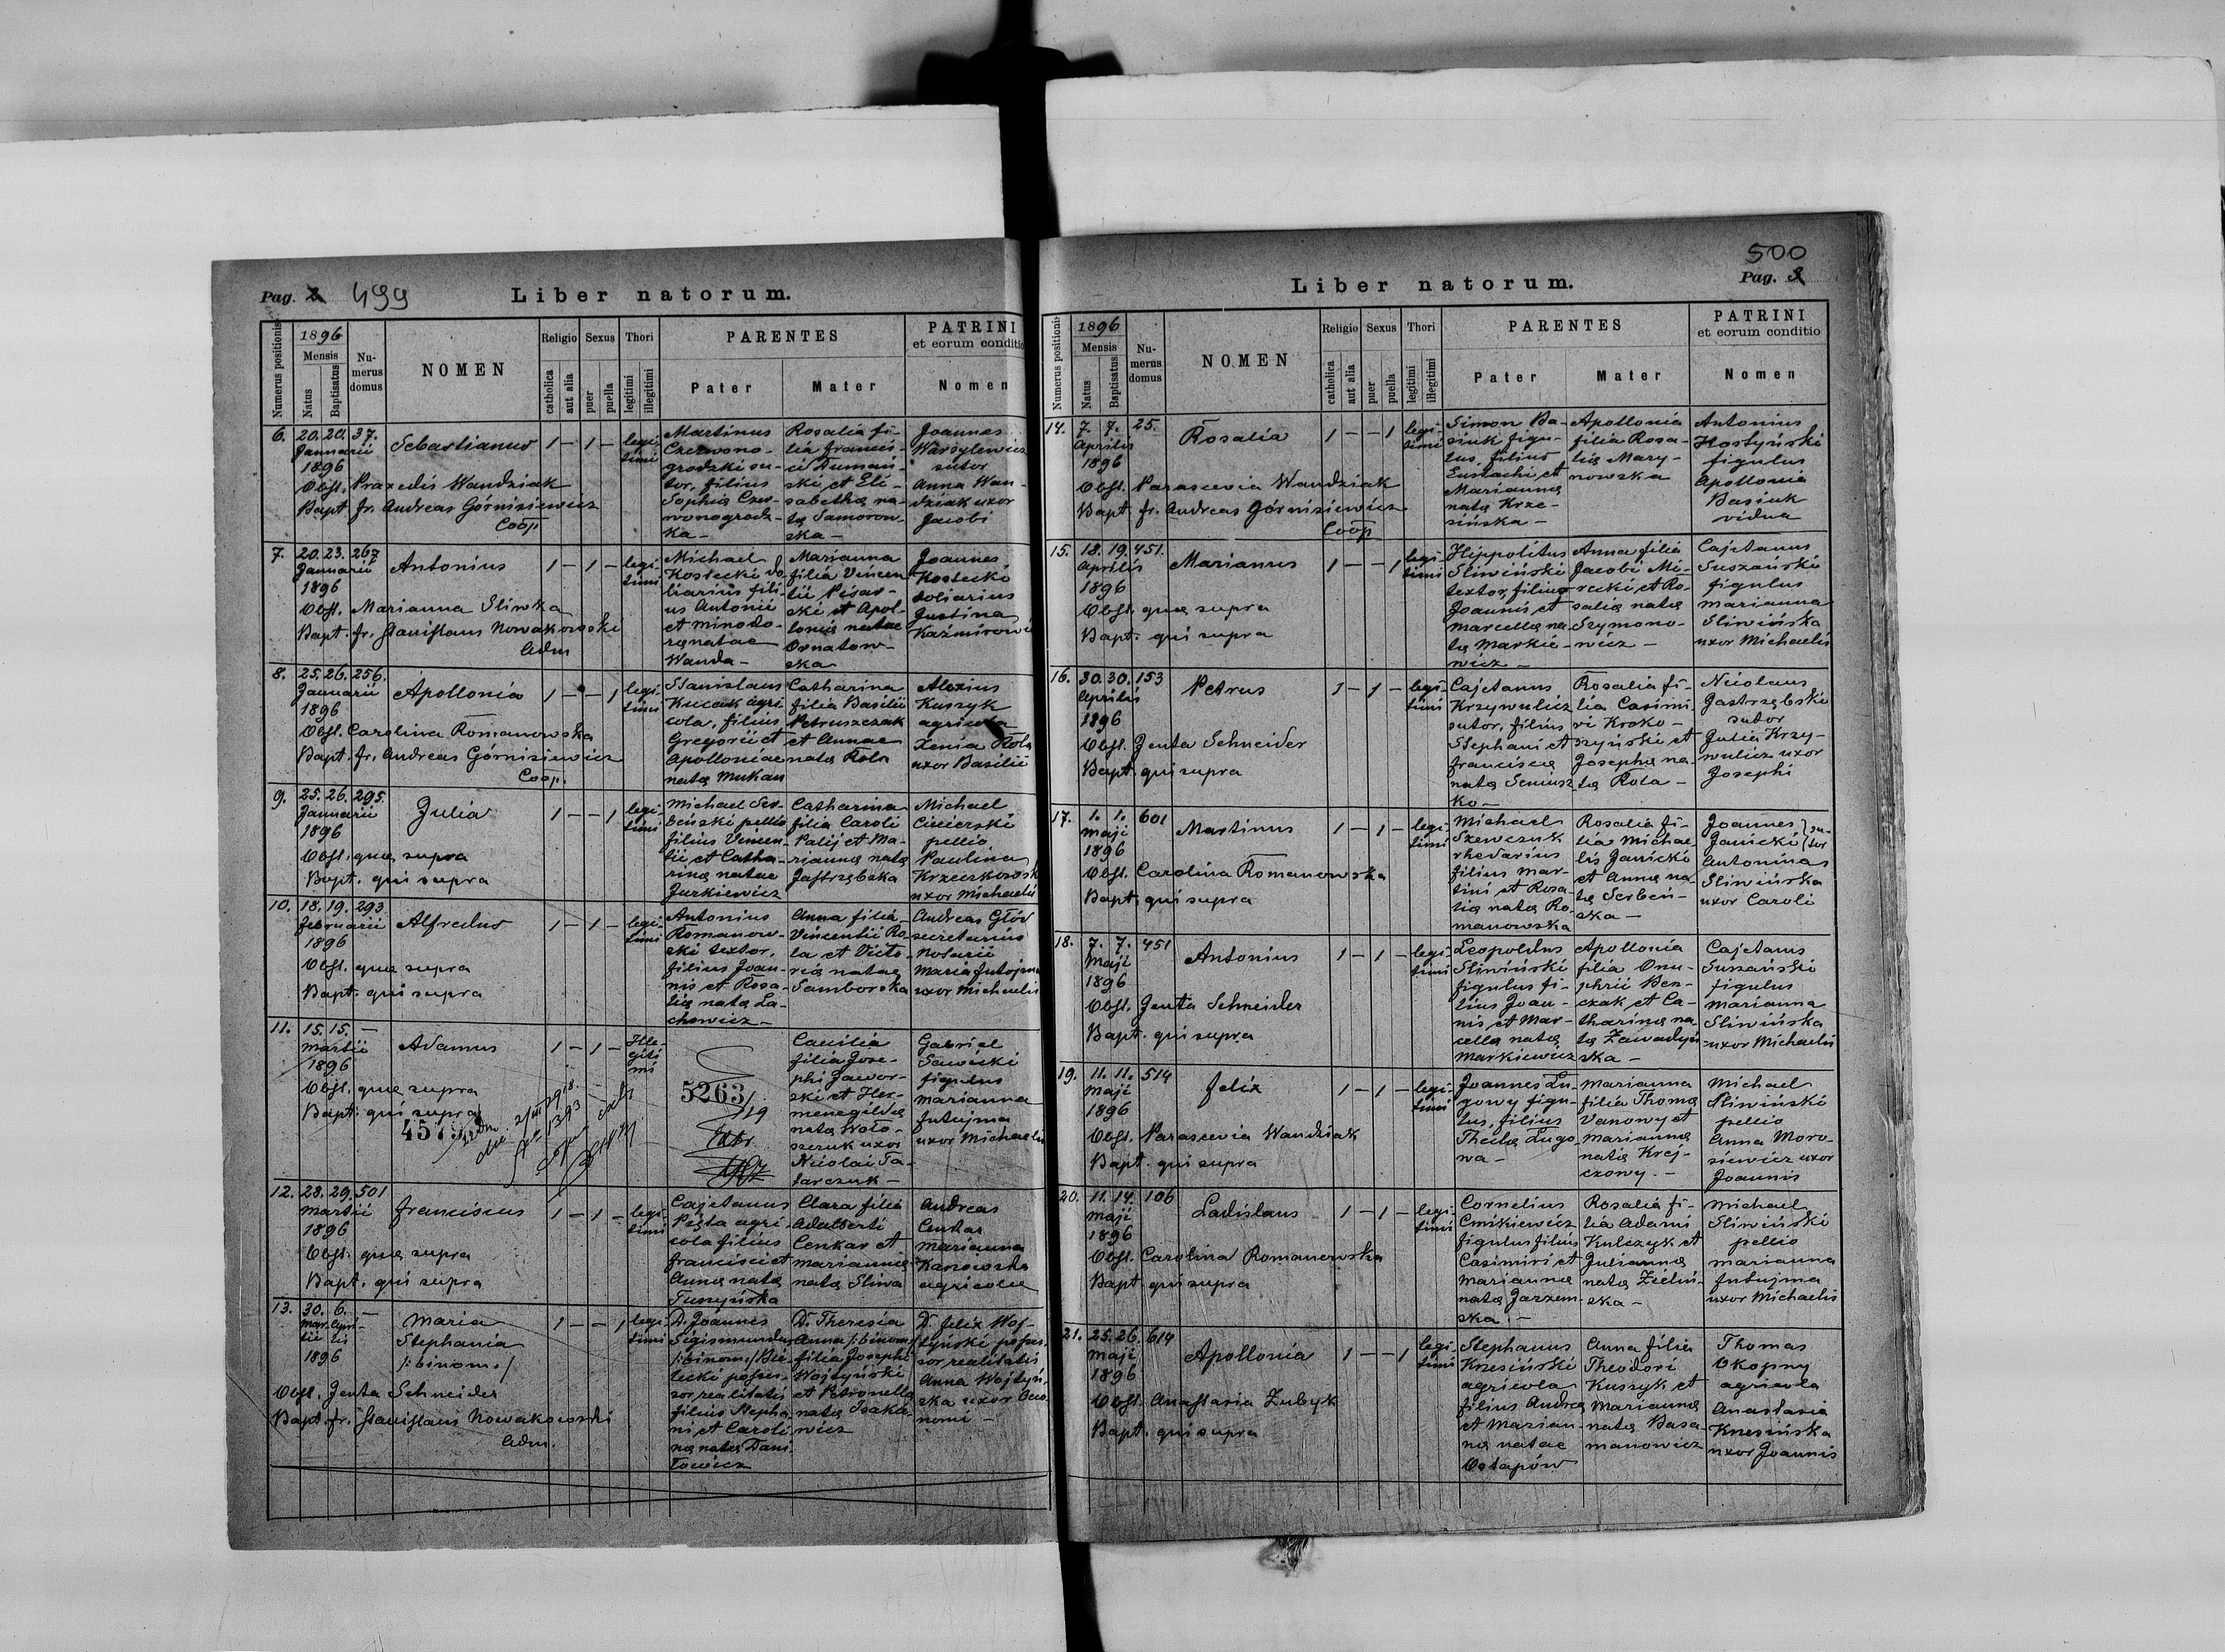 Pag. 2 499
Liber natorum.
Numerus positionis
1896
Mensis
Natus
Baptisatus
Nu-
merus
domus
NOMEN
Religio
catholica
aut alia
Sexus
puer
puella
Thori
legitimi
illegitimi
PARENTES
Pater
Mater
PATRINI
et eorum conditio
Nomen
6. 20. 20. 37.
Januarii
1896
Sebastianus
1 – 1 – legi-
timi
Obst. Praxedis Wandziak
Bapt. fr. Andreas Górnisiewicz
Coop.
Martinus
Czerwono-
grodzki su-
tor, filius
Sophia Czer-
wonogrodz-
ka –
Rosalia fi-
lia Francis-
ci Dumań-
ski et Eli-
sabetha na-
ta Samorow-
ska –
Joannes
Warsylewicz
sutor
Anna Wan-
dziak uxor
Jacobi
7. 20. 23. 267
Januarii
1896
Antonius
1 – 1 – legi-
timi
Obst. Marianna Sliwka
Bapt. fr. Stanislaus Nowakowski
Adm
Michael
Kostecki do-
liarius fili-
us Antonii
et Minodo-
ra natae
Wanda –
Marianna
filia Vincen-
tii Pisar-
ski et Apol-
lonia natae
Ornatow-
ska
Joannes
Kostecki
doliarius
Justina
8. 25. 26. 256.
Januarii
1896
Apollonia
1 – – 1 legi-
timi
Obst. Carolina Romanowska
Bapt. fr. Andreas Górnisiewicz
Coop.
Stanislaus
Kuczik agri-
cola, filius
Gregorii et
Apolloniae
nata Mukan
Catharina
filia Basilii
Petruszczak
et Annae
nata Rola
Alexius
Kuszyk
agricola
Xenia Rola
uxor Basilii
9. 25. 26. 295.
Januarii
1896
Julia
1 – – 1 legi-
timi
Obst. qua supra
Bapt. qui supra
Michael Ser-
beński pellio
filius Vincen-
tii et Catha-
rina natae
Jurkiewicz
Catharina
filia Caroli
Palij et Ma-
rianna nata
Jastrzębska
Michael
Ciucierski
pellio
Paulina
uxor Michaelis
10. 18. 19. 293
Februarii
1896
Alfredus
1 – 1 – legi-
timi
Obst. qua supra
Bapt. qui supra
Antonius
Romanow-
ski textor,
filius Joan-
nis et Rosa-
lia nata La-
chowicz –
Anna filia
Vincentii Ro-
la et Victo-
ria natae
Samborska
Andreas Głód
secretarius
notarii
Maria Futujma
uxor Michaelis
11. 15. 15. –
Martii
1896
Adamus
1 – 1 – Ille-
giti
mi
Obst. qua supra
Bapt. qui supra
5263
/19
Caecilia
filia Jose-
phi Jawor-
ski et Her-
menegilda
nata Woło-
szczuk uxor
Nicolai Ta-
tarczuk –
Gabriel
Sawicki
figulus
Marianna
Futujma
uxor Michaelis
12. 28. 29. 501
Martii
1896
Franciscus
1 – 1 – legi-
timi
Obst. qua supra
Bapt. qui supra
Cajetanus
Pięta agri-
cola filius
Francisci et
Anna nata
Tuszyńska
Clara filia
Adalberti
Cenkar et
Marianna
nata Sliwa
Andreas
Cenkar
Marianna
Karnowska
agricolae
13. 30. 6. –
Mar- Apri-
tii lis
1896
Maria
Stephania
/:binom:/
1 – – 1 legi-
timi
Obst. Jenta Schneider
Bapt. fr. Stanislaus Nowakowski
Adm.
D. Joannes
Sigismundus
/:binom:/ Bie-
lecki posses-
sor realitatis
filius Stepha-
ni et Caroli-
na nata Dani-
łowicz
D. Theresia
Anna /:binom:/
filia Josephi
Wojtyński
et Petronella
nata Isako-
wicz
D. Felix Woj-
tyński posses-
sor realitatis
Anna Wojtyń-
ska uxor Oeco-
nomi –
500
Pag. 3
Liber natorum.
Numerus positionis
1896
Mensis
Natus
Baptisatus
Nu-
merus
domus
NOMEN
Religio
catholica
aut alia
Sexus
puer
puella
Thori
legitimi
illegitimi
PARENTES
Pater
Mater
PATRINI
et eorum conditio
Nomen
14. 7. 7. 25.
Aprilis
1896
Rosalia
1 – – 1 legi-
timi
Obst. Parascevia Wandziak
Bapt. fr. Andreas Górnisiewicz
Coop
Simon Ba-
siuk figu-
lus, filius
Eustachi et
Marianna
nata Krze-
sińska –
Apollonia
filia Rosa-
lia Mary-
nowska
Antonius
Hostyński
figulus
Apollonia
Basiuk
vidua
15. 18. 19. 451.
Aprilis
1896
Marianus
1 – – 1 legi-
timi
Obst. qua supra
Bapt. qui supra
Hippolitus
Sliwiński
textor, filius
Joannis et
Marcella na-
ta Markie-
wicz –
Anna filia
Jacobi Mi-
recki et Ro-
salia nata
Szymono-
wicz –
Cajetanus
Suszański
figulus
Marianna
Sliwińska
uxor Michaelis
16. 30. 30. 153
Aprilis
1896
Petrus
1 – 1 – legi-
timi
Obst. Jenta Schneider
Bapt. qui supra
Cajetanus
Krzywulicz
sutor, filius
Stephani et
Francisca
nata Seniusz-
ko –
Rosalia fi-
lia Casimi-
ri Kroko-
szyński et
Josepha na-
ta Rola –
Nicolaus
Jastrzębski
sutor
Julia Krzy-
wulicz uxor
Josephi
17. 1. 1. 601
Maji
1896
Martinus
1 – 1 – legi-
timi
Obst. Carolina Romanowska
Bapt. qui supra
Michael
Szewczuk
rhedarius
filius Mar-
tini et Rosa-
lia nata Ro-
manowska
Rosalia fi-
lia Michae-
lis Janicki
et Anna na-
ta Serbeń-
ska –
Joannes } su-
Janicki } tor
Antonina
Sliwińska
uxor Caroli
18. 7. 7. 451
Maji
1896
Antonius
1 – 1 – legi-
timi
Obst. Jenta Schneider
Bapt. qui supra
Leopoldus
Sliwiński
figulus fi-
lius Joan-
nis et Mar-
cella nata
Markiewicz
Apollonia
filia Onu-
phrii Ben-
czak et Ca-
tharina na-
ta Zawadyń-
ska –
Cajetanus
Suszański
figulus
Marianna
Sliwińska
uxor Michaelis
19. 11. 11. 514
Maji
1896
Felix
1 – 1 – legi-
timi
Obst. Parascevia Wandziak
Bapt. qui supra
Joannes Łu-
gowy figu-
lus, filius
Thecla Ługo-
wa –
Marianna
filia Thoma
Vanowy et
Marianna
nata Krej-
czowy. –
Michael
Sliwiński
pellio
Anna Moro-
siewicz uxor
Joannis
20. 11. 14. 106
Maji
1896
Ladislaus
1 – 1 – legi-
timi
Obst. Carolina Romanowska
Bapt. qui supra
Cornelius
Cmikiewicz
figulus filius
Casimiri et
Marianna
nata Jarzem-
ska. –
Rosalia fi-
lia Adami
Kulczyk et
Julianna
nata Zieliń-
ska –
Michael
Sliwiński
pellio
Marianna
Futujma
uxor Michaelis
21. 25. 26. 614
Maji
1896
Apollonia
1 – – 1 legi-
timi
Obst. Anastasia Zubyk
Bapt. qui supra
Stephanus
Krzesiński
agricola
filius Andrea
et Marian-
na natae
Ostapów
Anna filia
Theodori
Kuszyk et
Marianna
nata Basa-
manowicz
Thomas
Okopny
agricola
Anastasia
Krzesińska
uxor Joannis